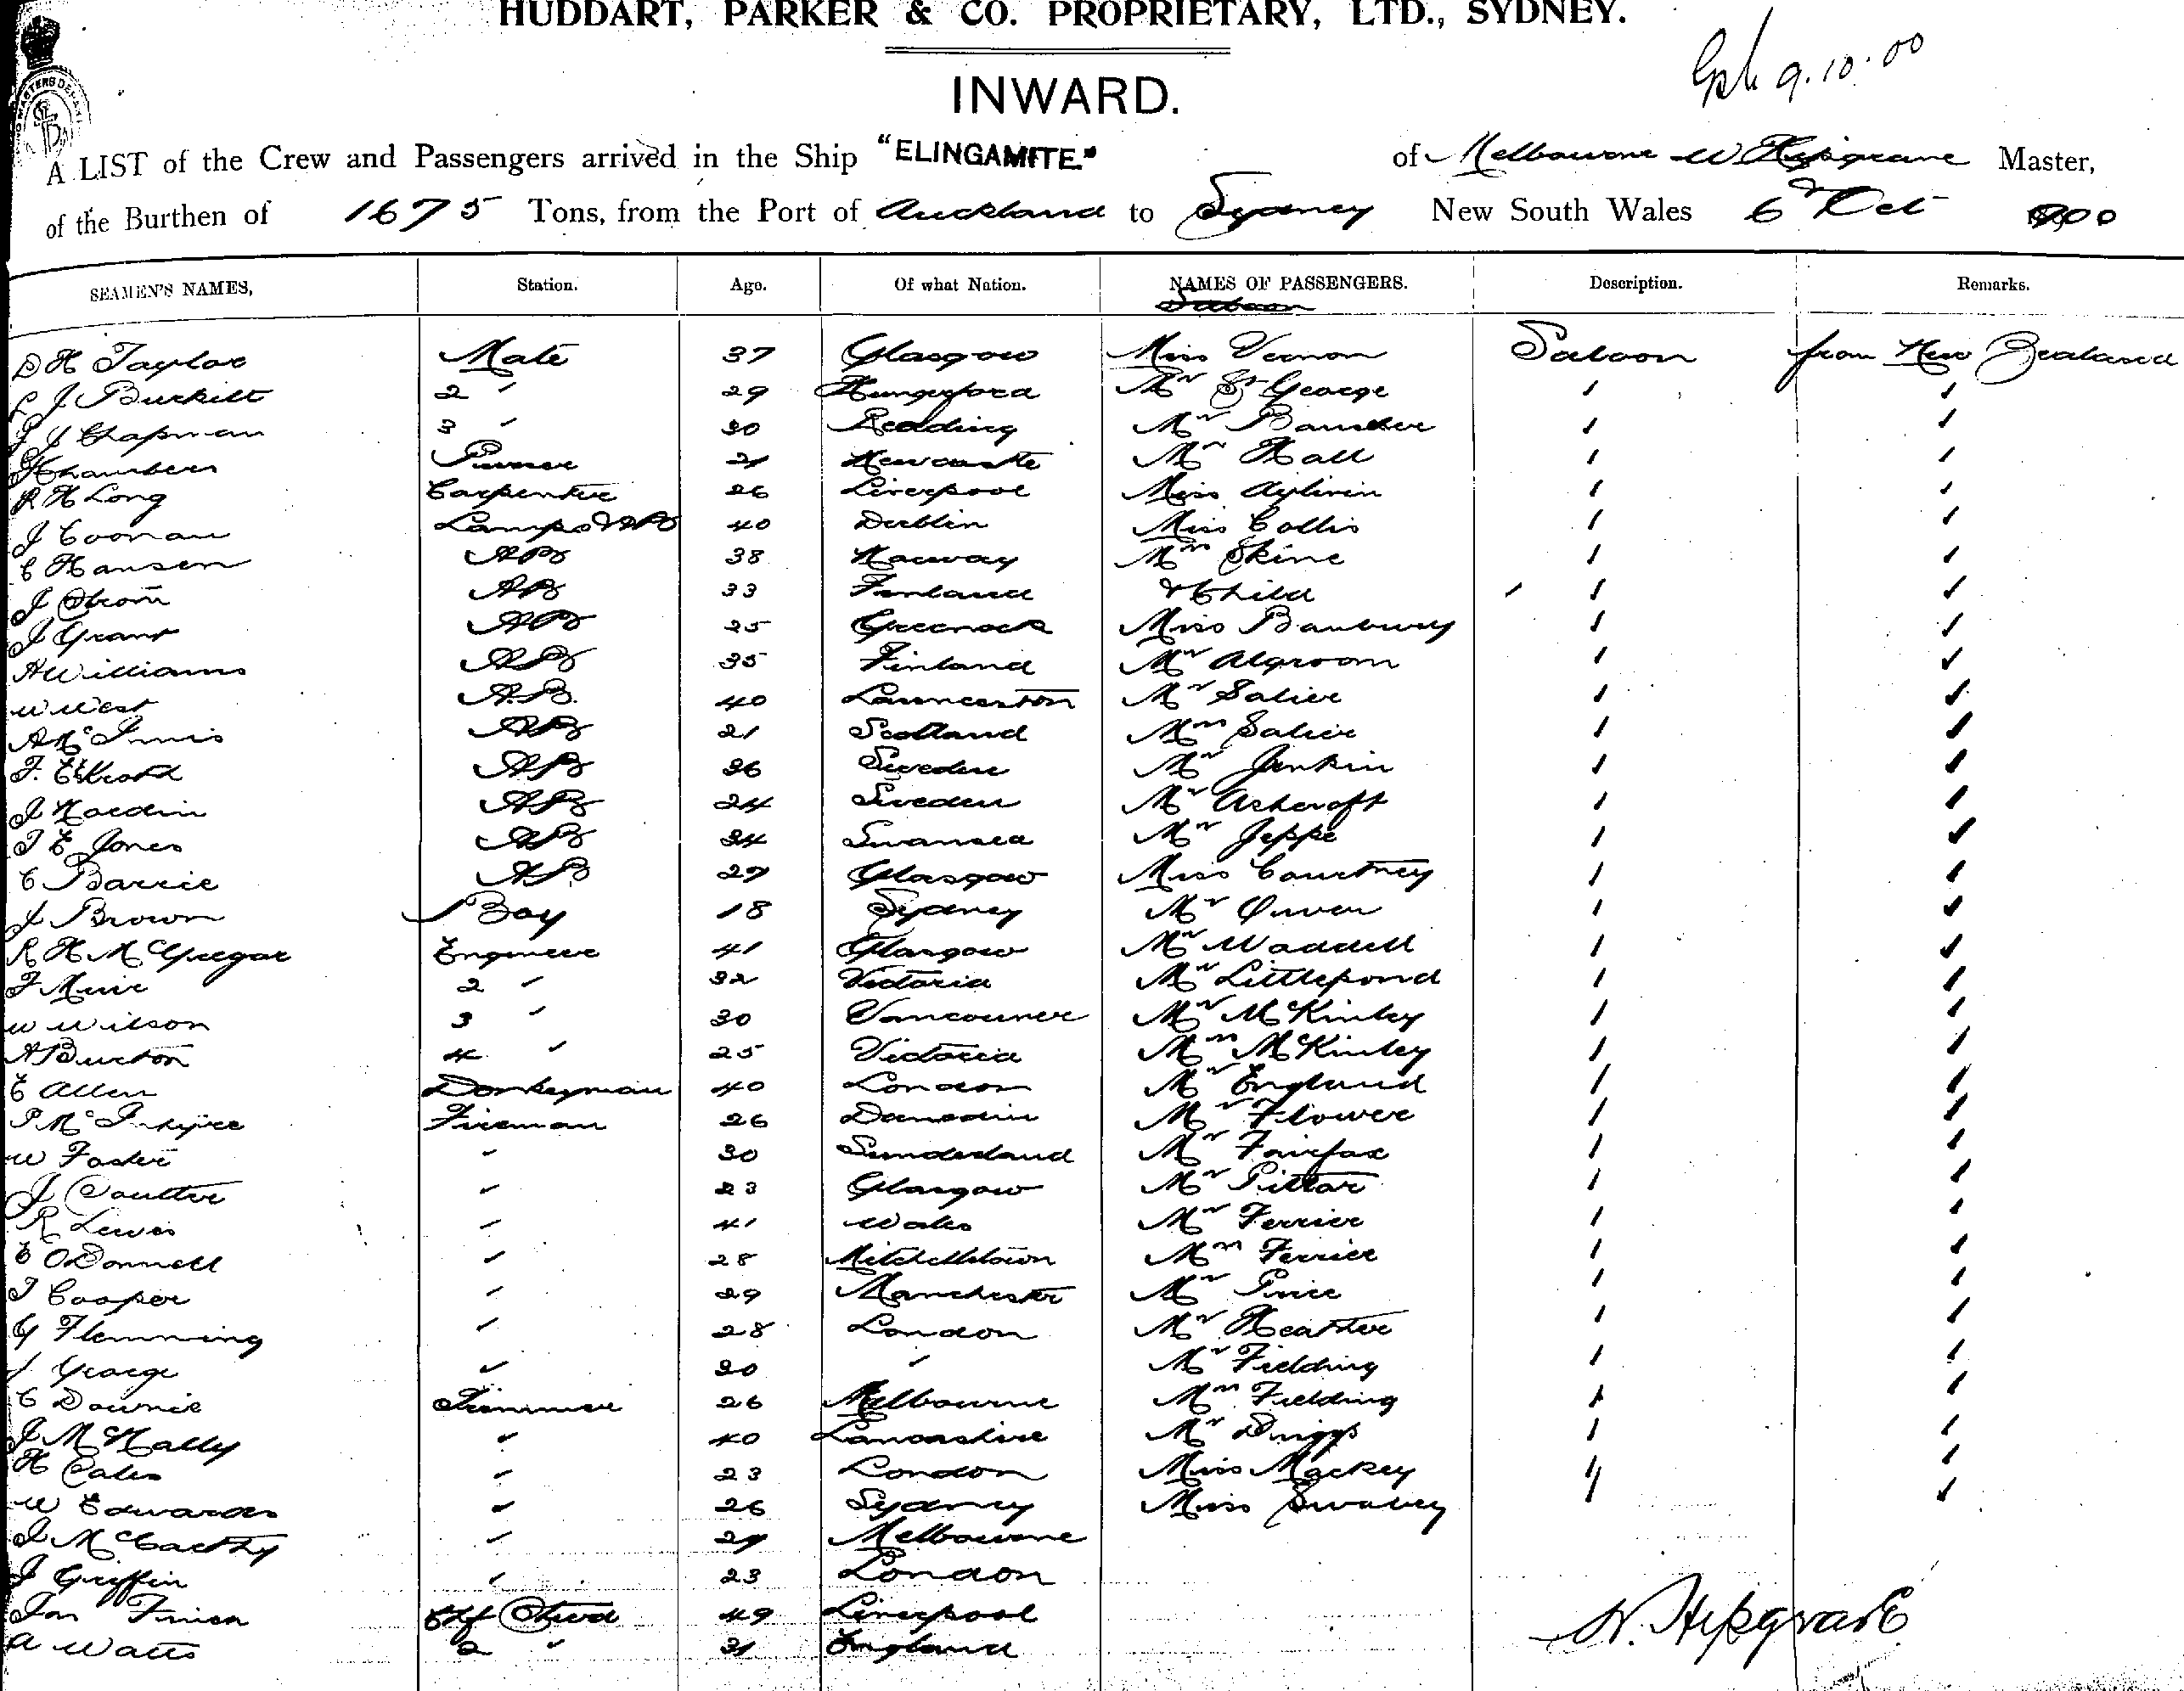 HUDDART, PARKER & CO. PROPRIETARY, LTD., SYDNEY.
9.10.00
INWARD.
A LIST of the Crew and Passengers arrived in the Ship "ELINGAMITE" of Melbourne W Hepgrave Master,
of the Burthen of 1675 Tons, from the Port of Auckland to Sydney New South Wales 6th Oct 1900
SEAMEN'S NAMES, Station. Age. Of what Nation. NAMES OF PASSENGERS. Description. Remarks.
Saloon
D H Taylor Mate 37 Glasgow Miss Vernon Saloon from New Zealand
L J Burkitt 2 " 29 Hungerford Mr St George " "
J J Chapman 3 " 30 Reading Mr " "
Chambers Purser 21 Newcastle Mr Hall " "
R H Long Carpenter 26 Liverpool Miss Aylivin " "
J Coonan Lamps & AB 40 Dublin Miss Collis " "
C Hansen AB 38 Norway Mrs Skine " "
J Strom AB 33 Finland & Child " " "
J Grant AB 25 Greenock Miss Banbury " "
A Williams AB 35 Finland Mr Algroom " "
W West A.B. 40 Launceston Mr Salier " "
A McInnis AB 21 Scotland Mrs Salier " "
F. AB 36 Sweden Mr Jenkin " "
J Nordin AB 24 Sweden Mr Ashcroft " "
T E Jones AB 34 Swansea Mr Jeppe " "
C Barrie AB 27 Glasgow Miss Courtney " "
J Brown Boy 18 Sydney Mr Owen " "
R H McGregor Engineer 41 Glasgow Mr Waddell " "
F Muir 2 " 32 Victoria Mr Littlepond " "
W Wilson 3 " 30 Vancouver Mr McKinley " "
A Burton 4 " 25 Victoria Mrs McKinley " "
E Allen Donkeyman 40 London Mr England " "
P McIntyre Fireman 26 Dunedin Mr Flower " "
W Foster " 30 Sunderland Mr Fairfax " "
J Coulter " 23 Glasgow Mr Pittar " "
R Lewis " 41 Wales Mr Ferrier " "
E ODonnell " 28 Mitchelltown Mrs Ferrier " "
T Cooper " 29 Manchester Mr Price " "
G Flemming " 28 London Mr Heather " "
J George " 30 " Mr Fielding " "
C Downie Trimmer 26 Melbourne Mrs Fielding " "
J McNally " 40 Lancashire Mr Driggs " "
H Cales " 23 London Miss Mackey " "
W Edwards " 26 Sydney Miss Swabey " "
J McCarthy " 29 Melbourne
J Griffin " 23 London
Jas Chf Stwd 49 Liverpool
A Watts 2 " 31 England
W. Hepgrave